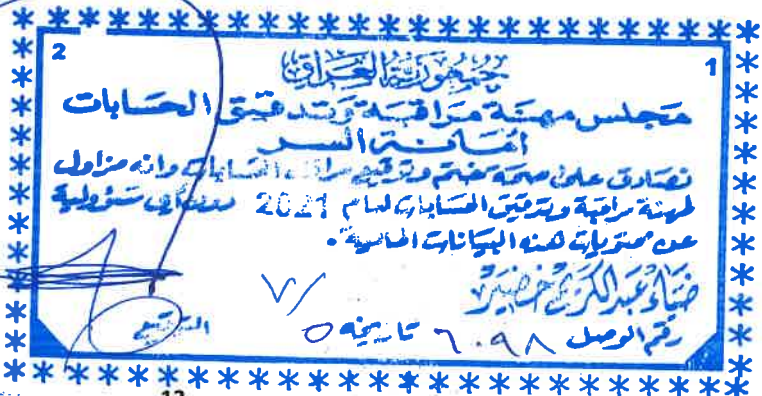 2 1
جمهورية العراق
مجلس مهنة مراقبة وتدقيق الحسابات
أمانة السر
نصادق على صحة ختم وتوقيع مراقب الحسابات وانه مزاول
لمهنة مراقبة وتدقيق الحسابات لعام 2021 دون أي مسؤولية
عن محتويات هذه البيانات الحالية.
ضياء عبد الكريم خضير
رقم الوصل ٦٠٩٨ تاريخه ٥ ٧/
التوقيع
12